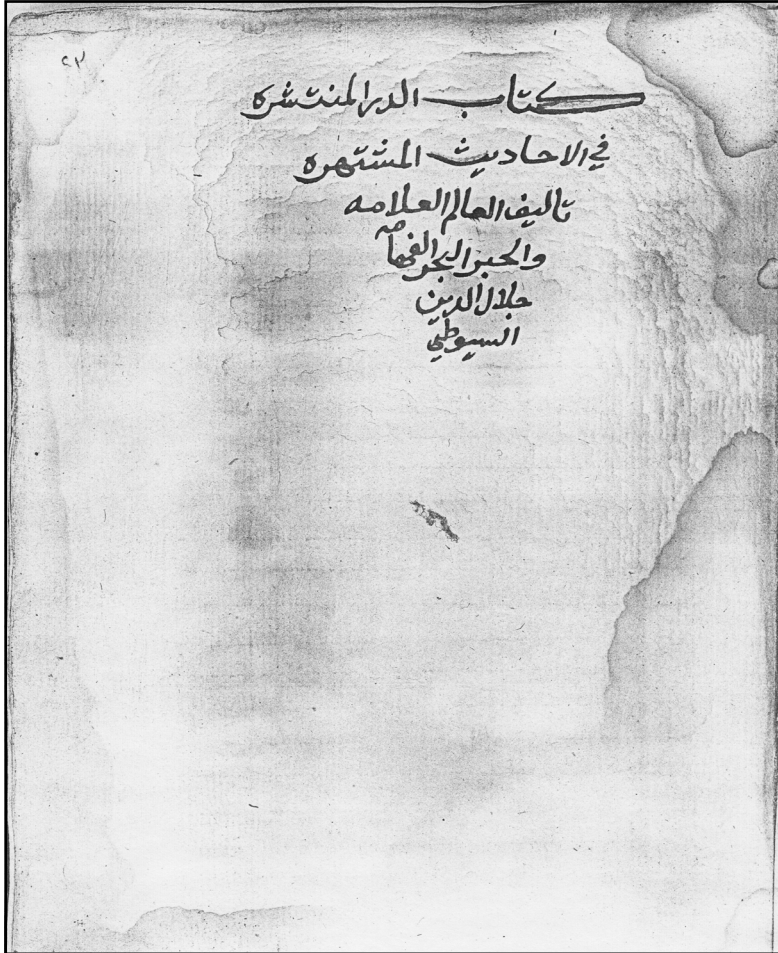 ٢٣
كتاب الدرر المنتشره
في الاحاديث المشتهره
تاليف العالم العلامه
والحبر البحر الفهامه
جلال الدين
السيوطي